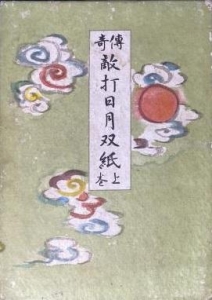 傳奇
敵打日月双紙
上巻